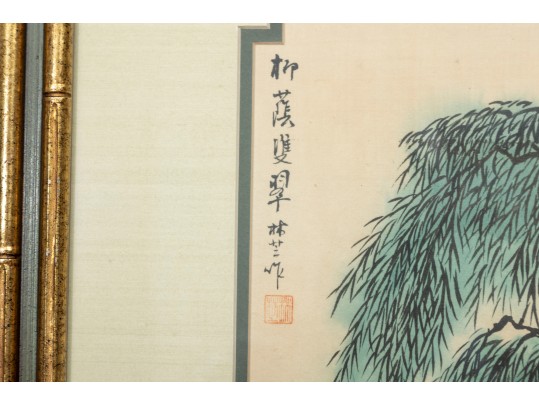 柳蔭雙翠 林芝作